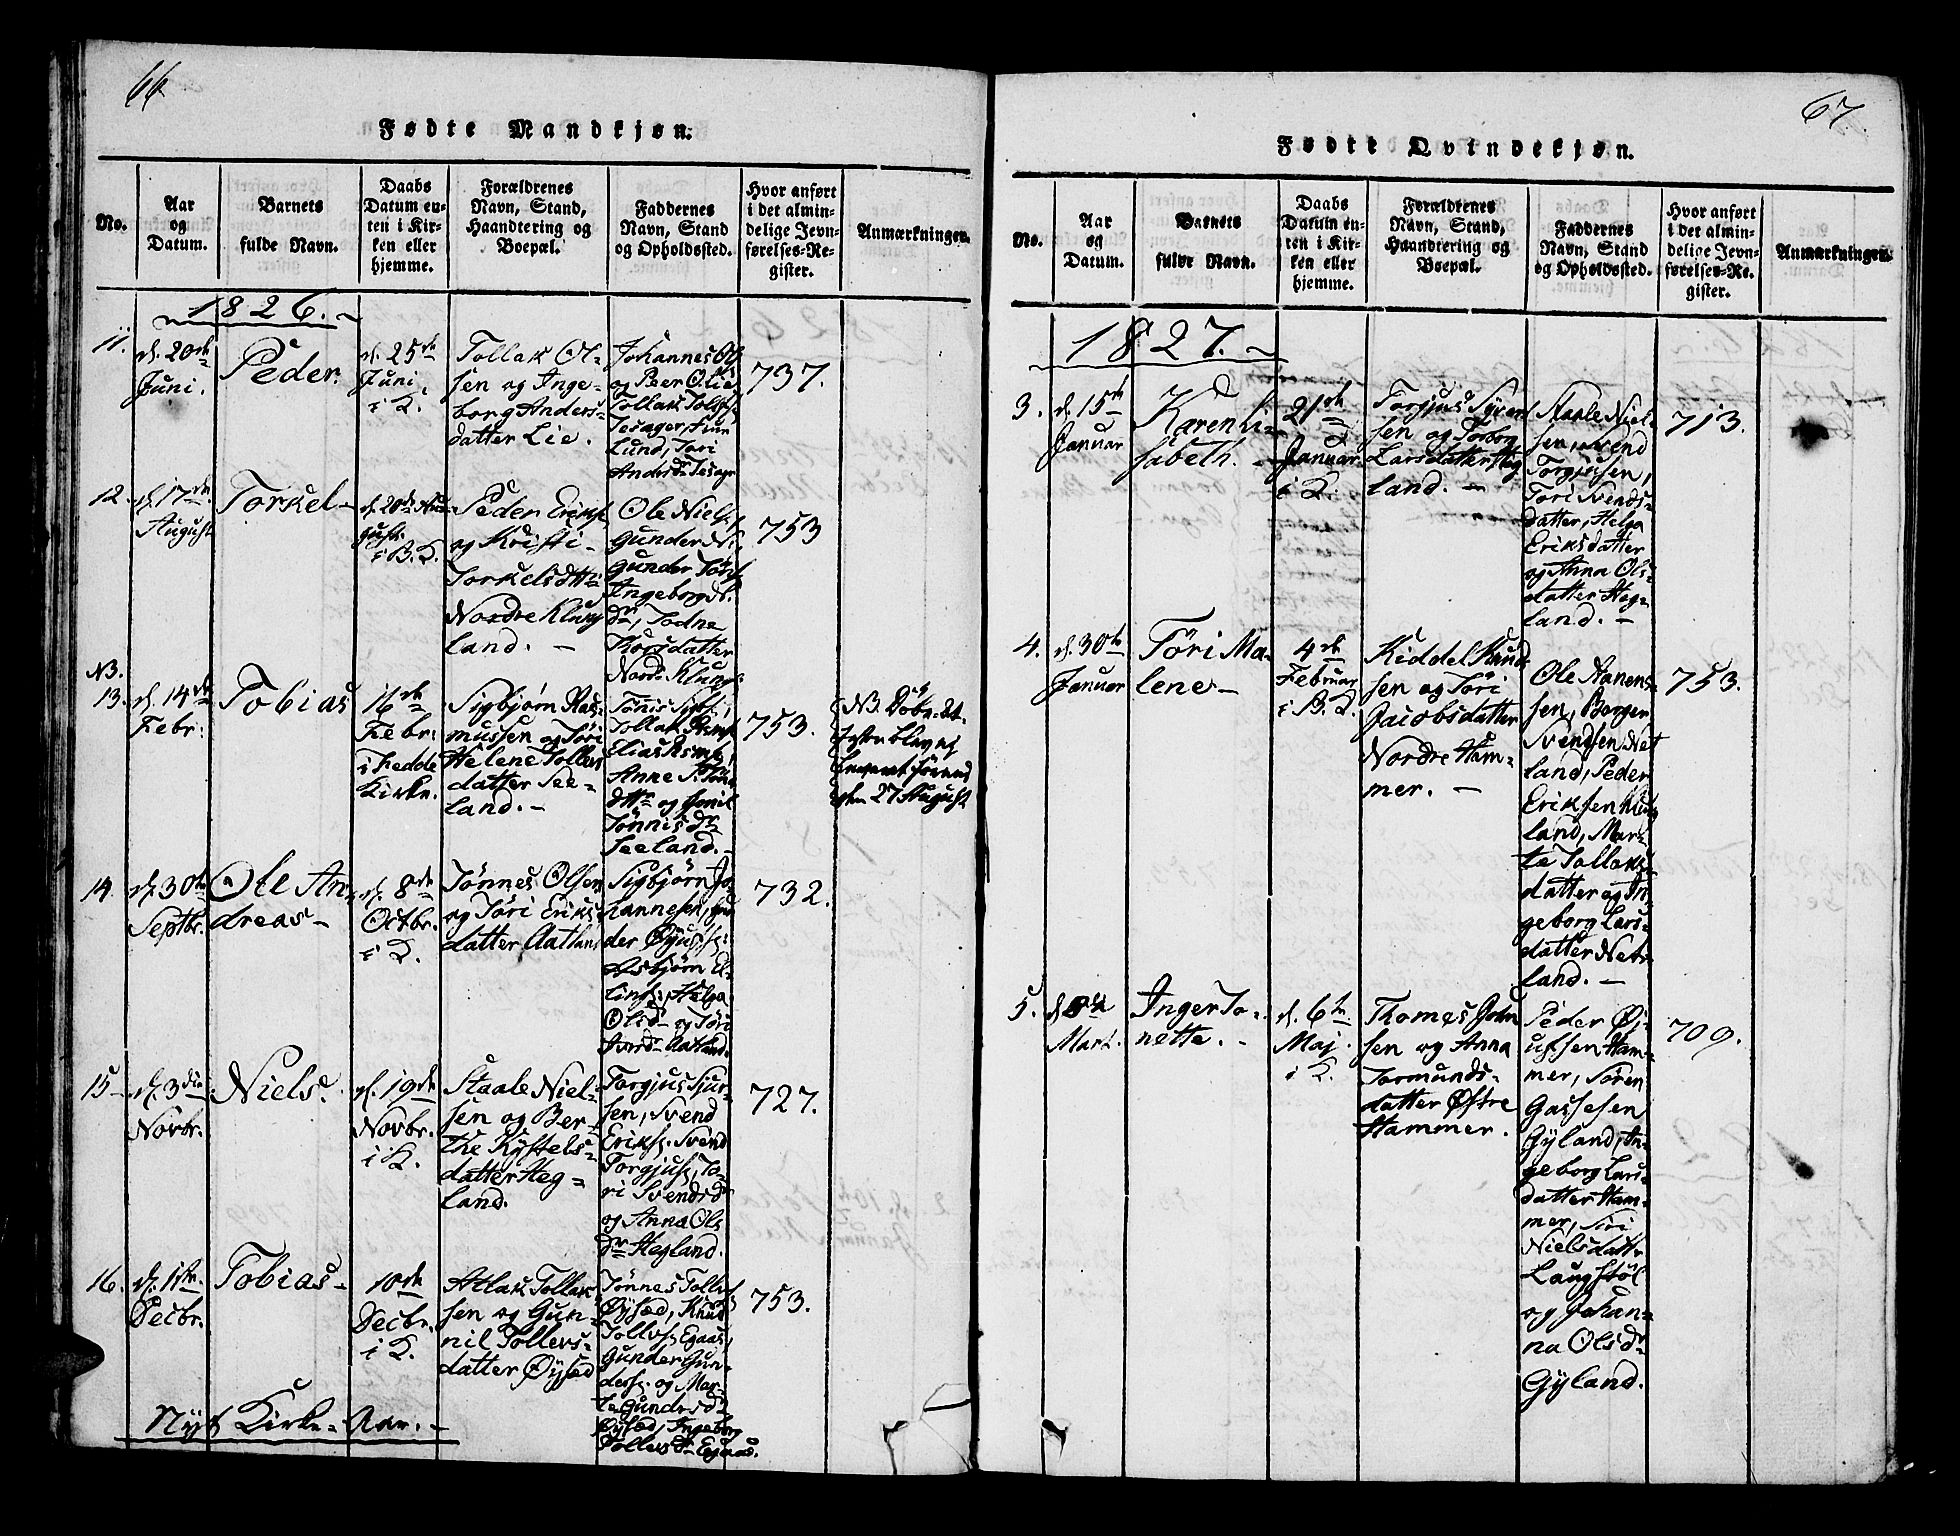 66
Fødte Mandkjøn.
No.
Aar
og
Datum.
Barnets
fulde Navn.
Daabs
Datum en-
ten i Kir-
ken eller
hjemme.
Forældrenes
Navn, Stand,
Haandtering og
Boepæl.
Faddernes
Navn, Stand
og Opholdssted.
Hvor anført
i det almin-
delige Jevn-
førelses-Re-
gister.
Anmærkninger.
1826.
11.
d. 20de
Juni.
Peder.
d. 25de
Juni
i K.
Tollak Ol-
sen og Inge-
borg Anders-
datter Lie.
Johannes Ols
og Peer Olie
Tollak Tollfs.
Lund, Tori
737.
12.
d. 17de
August
Torkel
d. 20de Au-
gust
i B. K.
Peder Eriks.
og Kristi
Torkelsdtt.
Nordre Klung
land.
Ole Niels.
Gunder
Gunder
Ingeborg
dr, Todne
datter
Nord. Klungl.
753
NB.
13.
d. 14de
Febr:
Tobias
16de
Febr:
i Fedde
Kirke.
Sigbjørn Ras-
mussen og Töri
Helene Tollevs
datter See-
land.
Tönis Sigbs.,
Tollak Rsms.
Elias Rsms.,
Anne S. Töne
dttr og Gonil
Tönnis dr
Seeland.
753.
NB. Döbs-At-
testen blev ej
leveret förend
den 27 August
14.
d. 30te
Septbr.
Ole An-
dreas
d. 8de
Octbr.
i K.
Tönnes Olsen
og Töri Eriks-
datter Aatland
Sigbjørn Jo-
hannesen, Gun
der Øjufs.
Asbjørn El-
lings., Helga
Olsd og Töri
Aatland.
732.
15
d. 3die
Novbr.
Niels.
d. 19de
Novbr.
i K.
Staale Niel-
sen og Ber-
the Kystels-
datter Heg-
land.
Torgjus Siur-
sen, Svend
Eriks. Svend
Torgjus., To-
ri Svendsd
og Anna Ols
dr Hegland.
727.
16.
d. 1ste
Decbr.
Tobias
10de
Decbr.
i K.
Atlak Tollak
sen og Gun-
nil Tollevs-
datter Øysæd
Tönnes Tollvs
Øysæd, Knud
Tollvs. Egaas,
Gunder Gun-
ders. og Mar-
te Gundersd
Øysæd, Ingeborg
Tollevs dr Egaas.
753.
Nyt Kirke-Aar.
67.
Fødte Qvindekjøn.
No.
Aar
og
Datum.
Barnets
fulde Navn.
Daabs
Datum en-
ten i Kir-
ken eller
hjemme.
Forældrenes
Navn, Stand,
Haandtering og
Boepæl.
Faddernes
Navn, Stand
og Opholdssted.
Hvor anført
i det almin-
delige Jevn-
førelses-Re-
gister.
Anmærkninger.
1827.
3.
d. 15de
Januar
Karen Li-
sabeth.
21de
Januar
i K.
Torgjus Syvert
sen og Torborg
Larsdatter Heg
land.
Staale Niel-
sen, Svend
Torgjusen,
Tori Svends-
datter, Helga
Eriksdatter
og Anna Ols-
datter Heg-
land.
713.
4.
d. 30te
Januar
Töri Ma-
lene
4de
Februar
i B. K.
Kiddel Knud
sen og Töri
Jacobsdatter
Nordre Ham-
mer.
Ole Aanens-
sen, Borger
Svendsen Net
land, Peder
Eriksen Klung
land, Mar-
te Tollaks
datter og In
geborg Lars-
datter Net-
land.
753.
5.
Mart.
Inger To-
nette.
d. 6te
Maj
i K.
Thomas John
sen og Anna
Tormunds-
datter Østre
Hammer.
Peder Øj-
ufsen Ham-
mer, Sören
Gassesen
Gyland, In-
geborg Lars-
datter Ham-
mer, Siri
Nielsdatter
Laugstöl
og Johan-
na Olsdr
Gyland.
709.